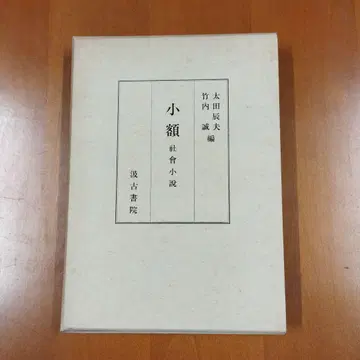 太田辰夫
竹内 誠 編
小額 社會小說
汲古書院